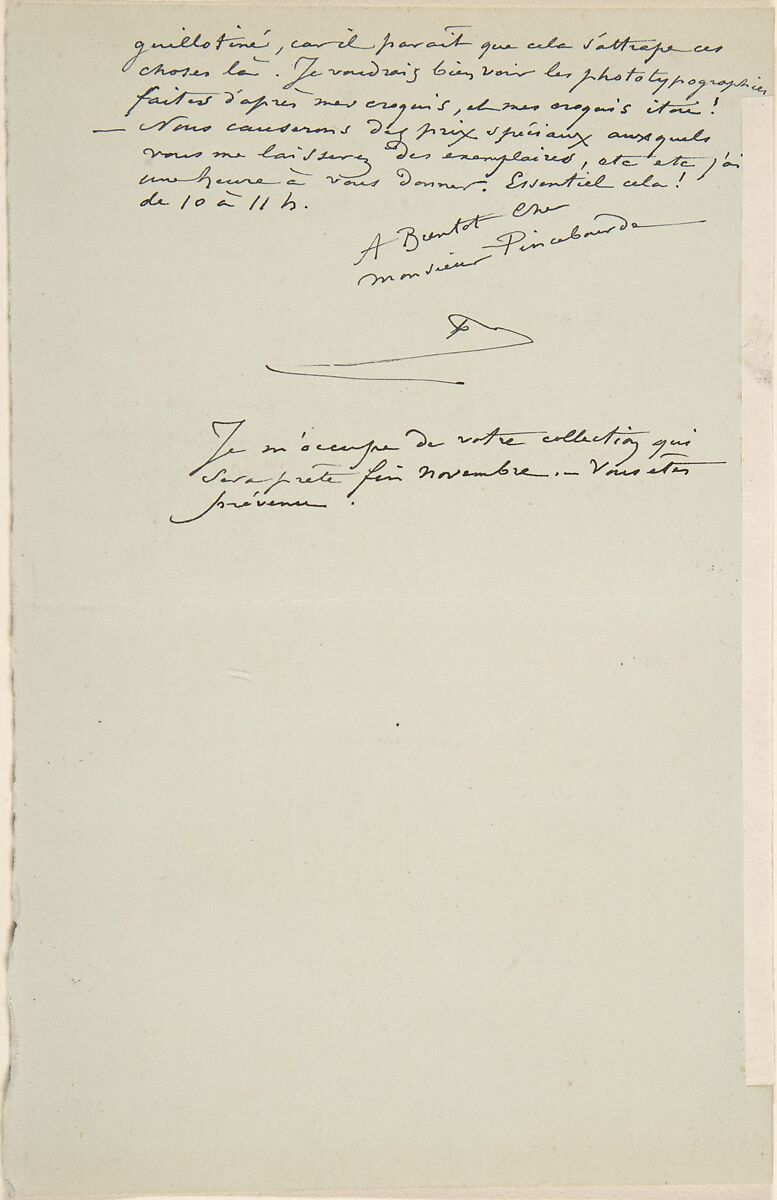 guillotiné, car il parait que cela s'attrape ces
choses là. Je voudrais bien voir les phototypographies
faites d'après mes croquis, et mes croquis itou!
— Nous causerons des prix spéciaux auxquels
vous me laisserez des exemplaires, etc etc j'ai
une heure à vous donner. Essentiel cela!
de 10 à 11 h.
A Bientot Cher
Monsieur Pincebourde
Je m'occupe de votre collection qui
sera prête fin novembre. — Vous etes
prévenu.